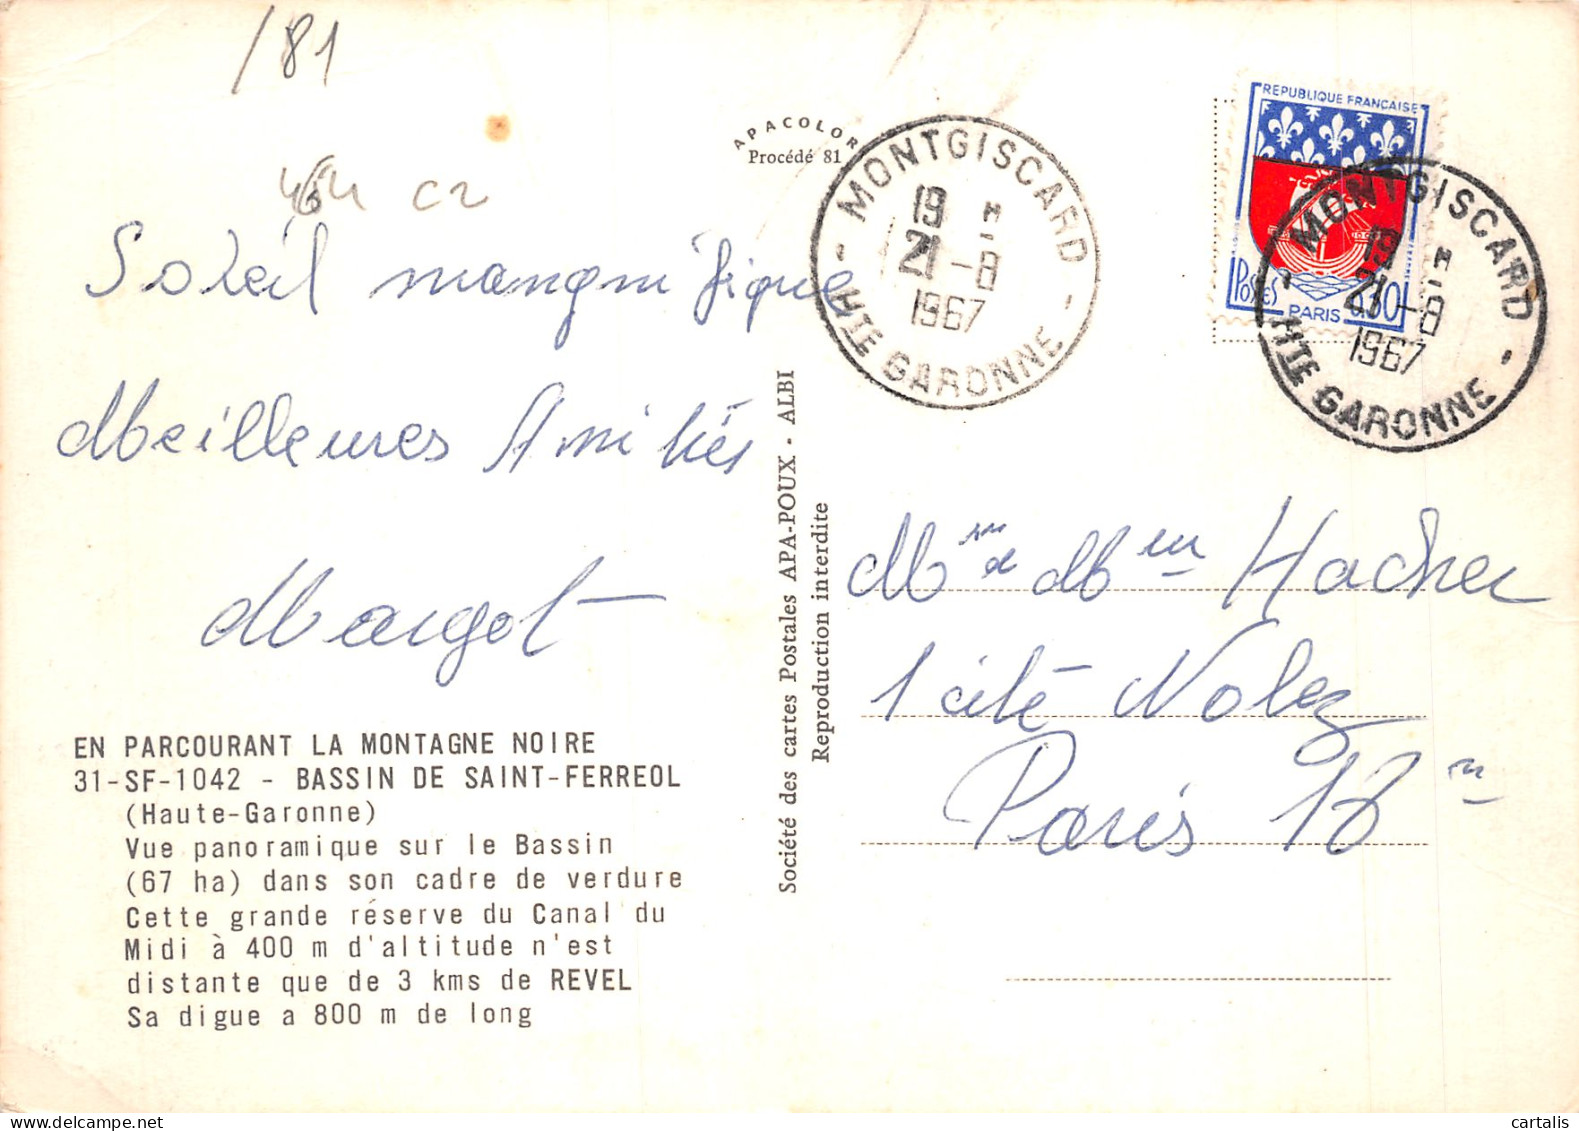 /81
C2
Soleil mangnifique
Meilleures Amitiés
Margot
EN PARCOURANT LA MONTAGNE NOIRE
31-SF-1042 - BASSIN DE SAINT-FERREOL
(Haute-Garonne)
Vue panoramique sur le Bassin
(67 ha) dans son cadre de verdure
Cette grande réserve du Canal du
Midi à 400 m d'altitude n'est
distante que de 3 kms de REVEL
Sa digue a 800 m de long
APACOLOR
Procédé 81
Société des cartes Postales APA-POUX - ALBI
Reproduction interdite
MONTGISCARD
19 H
21-8
1967
HTE GARONNE
REPUBLIQUE FRANÇAISE
POSTES
0,30
PARIS
MONTGISCARD
19 H
21-8
1967
HTE GARONNE
1 cité Nolez
Paris 18
cartalis
www.delcampe.net